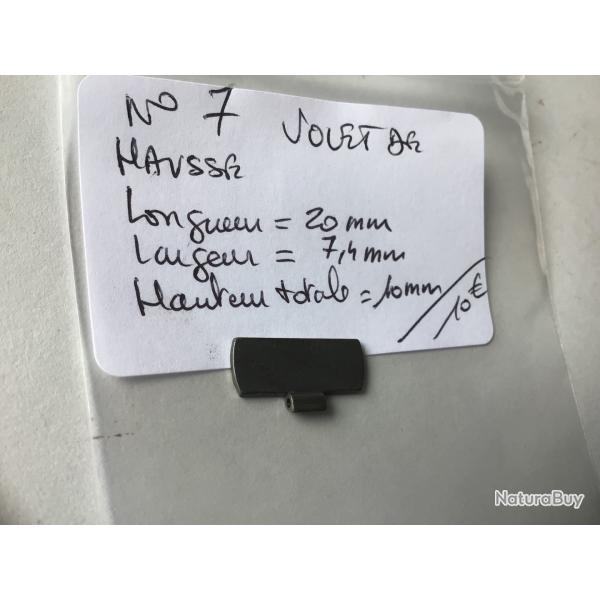 N° 7 VOLET DE
HAUSSE
Longueur = 20 mm
Largeur = 7,4 mm
Hauteur totale = 10 mm
10 €
NaturaBuy